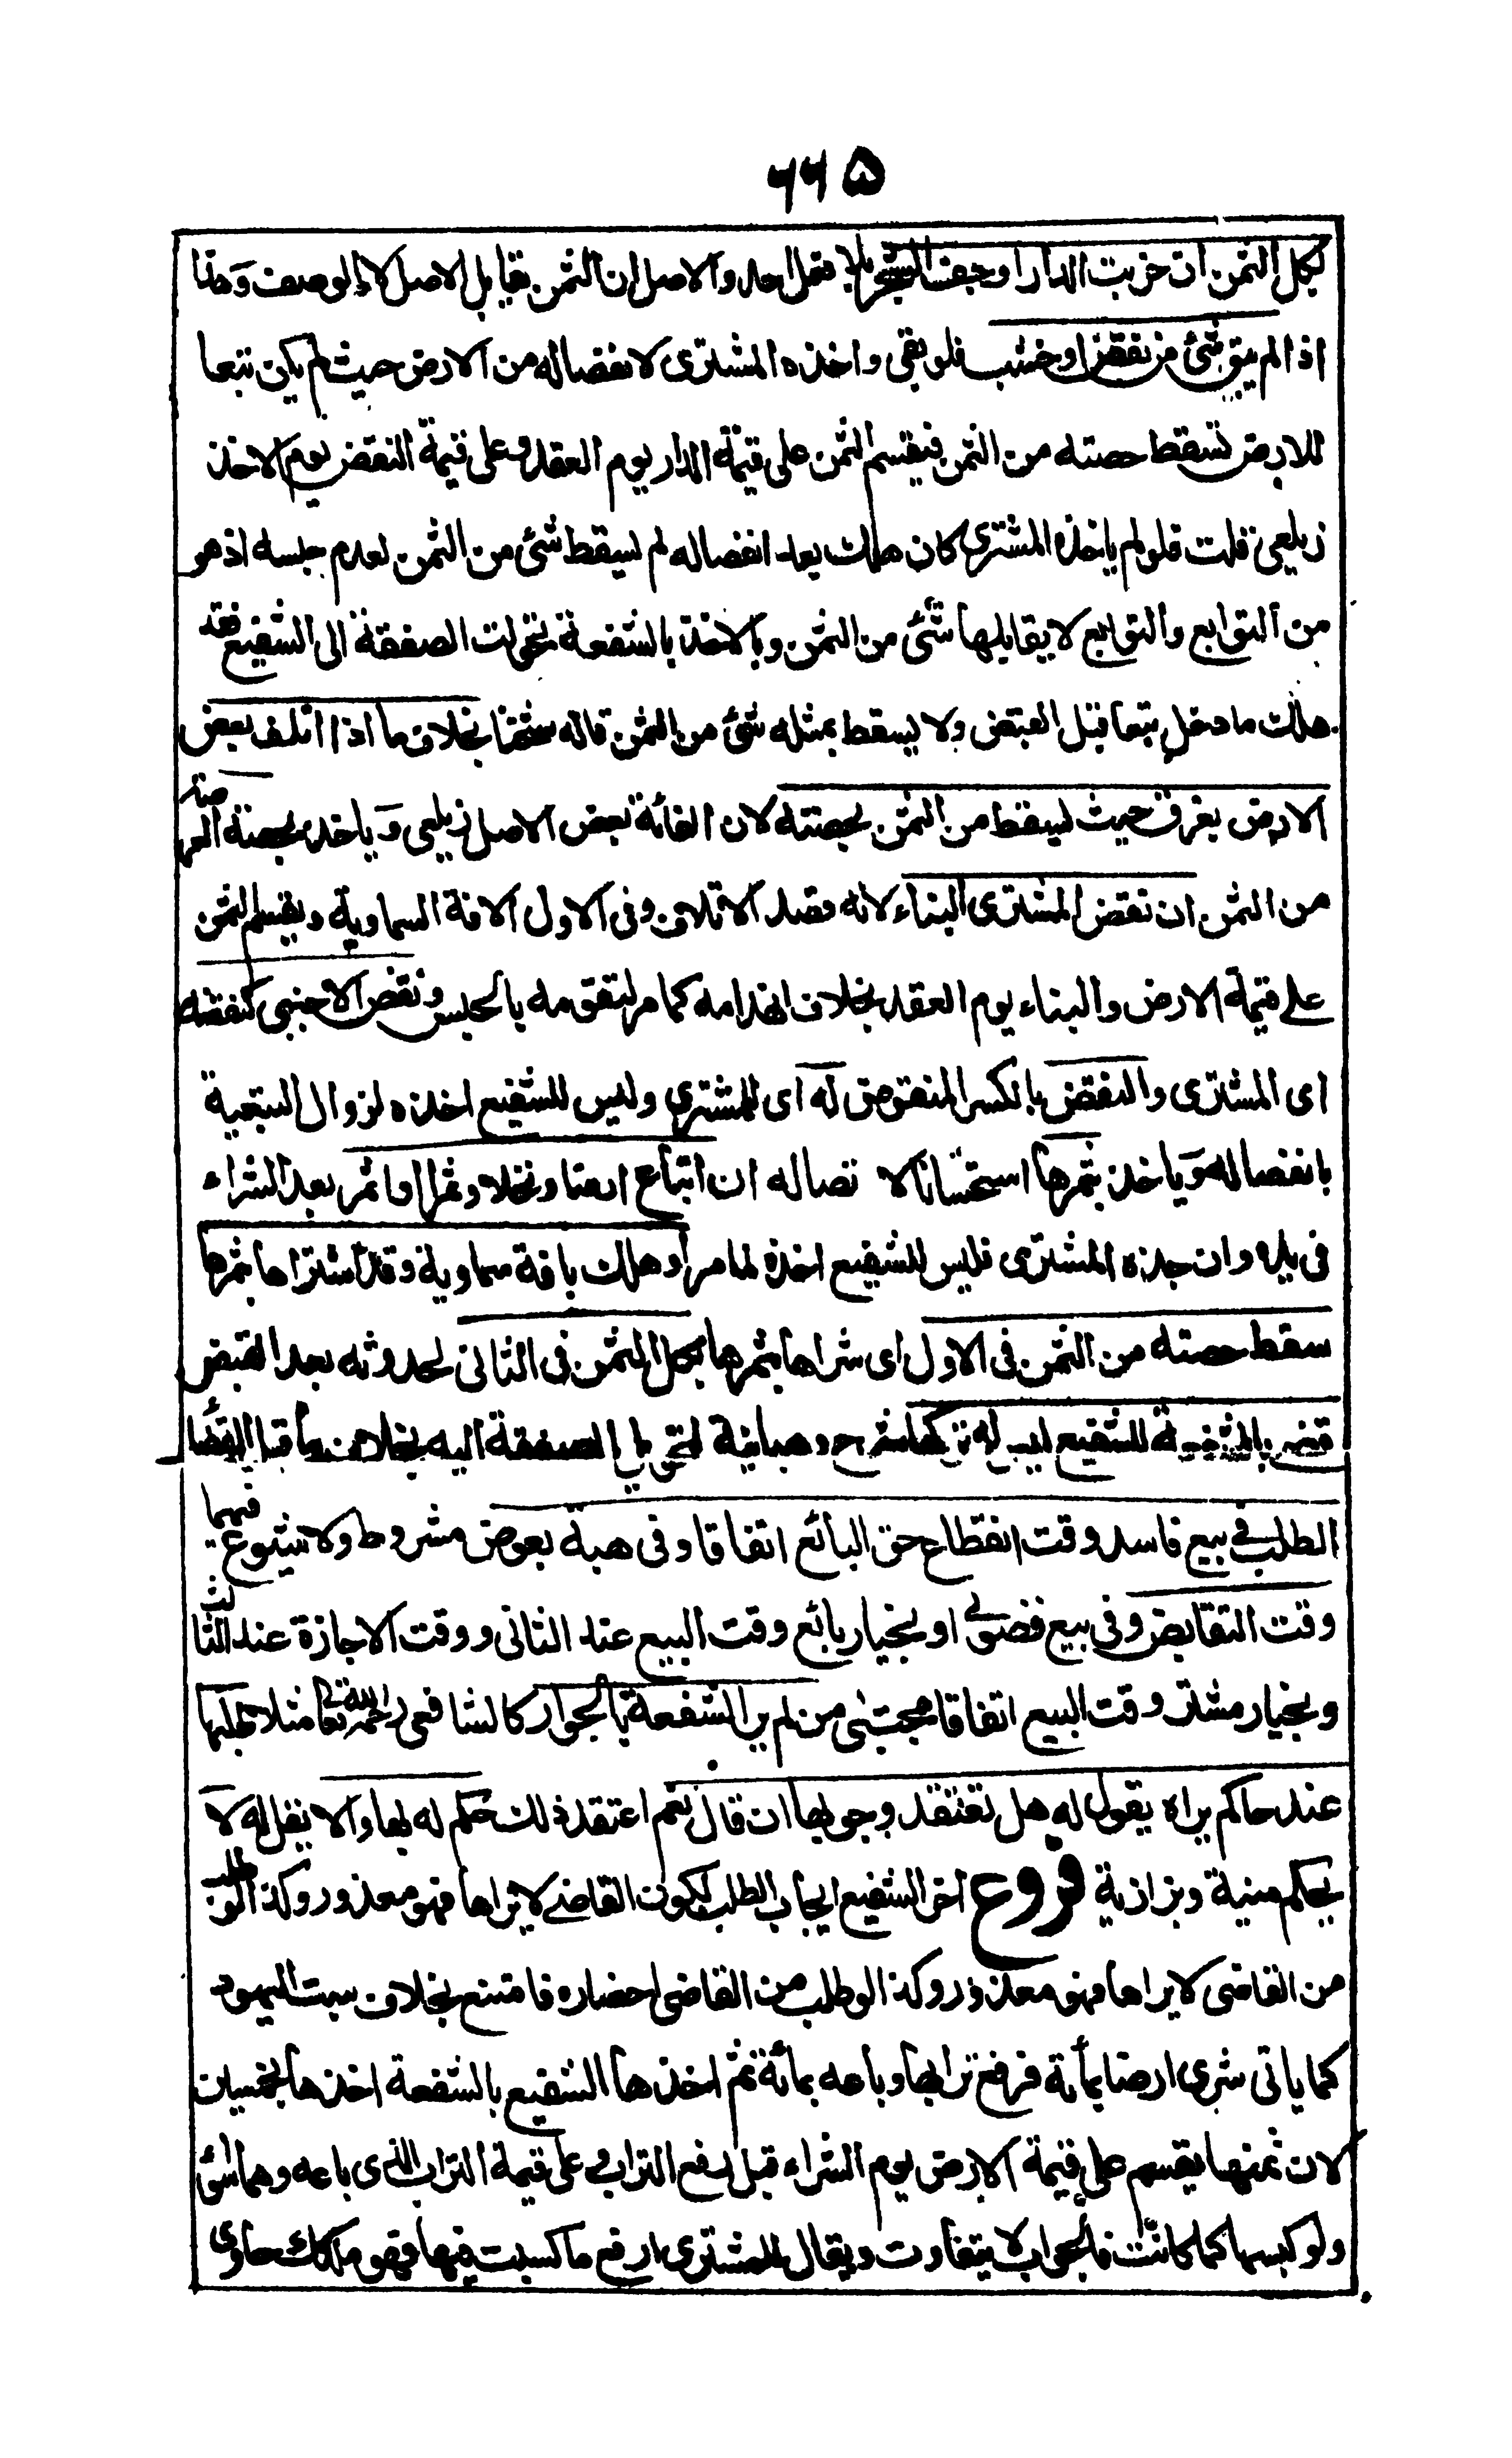 ٦٦٥
بكل الثمن ان خربت الدار او جف الشجر بلا فعل احد والاصل ان الثمن يقابل الاصل لا الوصف وهذا
اذا لم يبق شئ من نقض او خشب فلو بقى واخذه المشترى لانفصاله من الارض حيث لم يكن تبعا
للارض تسقط حصته من الثمن فيقسم الثمن على قيمة الدار يوم العقد وعلى قيمة النقض يوم الاخذ
زيلعى قلت فلو لم ياخذه المشترى كان هلك بعد انفصاله لم يسقط شئ من الثمن لعدم حبسه اذ هو
من التوابع والتوابع لا يقابلها شئ من الثمن وبالاخذ بالشفعة تحولت الصفقة الى الشفيع فقد
هلك ما دخل تبعا قبل القبض ولا يسقط بمثله شئ من الثمن قاله شيخنا بخلاف ما اذا اتلف بعض
الارض بغرق حيث يسقط من الثمن بحصته لان الفائة بعض الاصل زيلعى وياخذ بحصته العرصة
من الثمن ان نقض المشترى البناء لانه قصد الاتلاف وفى الاول الافة السماوية ويقسم الثمن
على قيمة الارض والبناء يوم العقد بخلاف انهدامه كما مر لتقومه بالحبس ونقض الاجنبى كنقضه
اى المشترى والنقض بالكسر المنقوض له اى للمشترى وليس للشفيع اخذه لزوال التبعية
بانفصاله وياخذ بثمرها استحسانا لا تصاله ان ابتاع ارضا ونخلا وثمرا او اثمر بعد الشراء
فى يده وان جذه المشترى فليس للشفيع اخذه لما مر او هلك بافة سماوية وقد اشتراها بثمرها
سقط حصته من الثمن فى الاول اى شراها بثمرها بكل الثمن فى الثانى لحدوثه بعد القبض
قضى بالشفعة للشفيع ليس له تركها شرح وهبانية لتحويل الصفقة اليه بخلاف ما قبل القضا
الطلب فى بيع فاسد وقت انقطاع حق البائع اتفاقا وفى هبة بعوض مشروط ولا شيوع فيهما
وقت التقابض وفى بيع فضولى او بخيار بائع وقت البيع عند الثانى ووقت الاجازة عند الثالث
وبخيار مشتر وقت البيع اتفاقا مجتبى من لم ير الشفعة بالجوار كالشافعى رحمه الله تعا مثلا طلبها
عند حاكم يراه يقول له هل تعتقد وجوبها ان قال نعم اعتقد ذلك حكم له بها والا يقل له لا
يحكم منية وبزازية فروع اخر الشفيع الجار الطلب لكون القاضى لا يراها فهو معذور وكذا لو طلب
من القاضى لا يراها فهو معذور وكذا لو طلب من القاضى احضاره فامتنع بخلاف سبت اليهود
كما ياتى شرى ارضا بمأية فرفع ترابها وباعه بمائة ثم اخذها الشفيع بالشفعة اخذها بخمسين
لان ثمنها يقسم على قيمة الارض يوم الشراء قبل رفع التراب وعلى قيمة التراب الذى باعه وهما سئ
ولو كبسها كما كانت فالجواب لا يتفاوت ويقال للمشترى ارفع ما كسبت فيها فهو ملكك حاوى